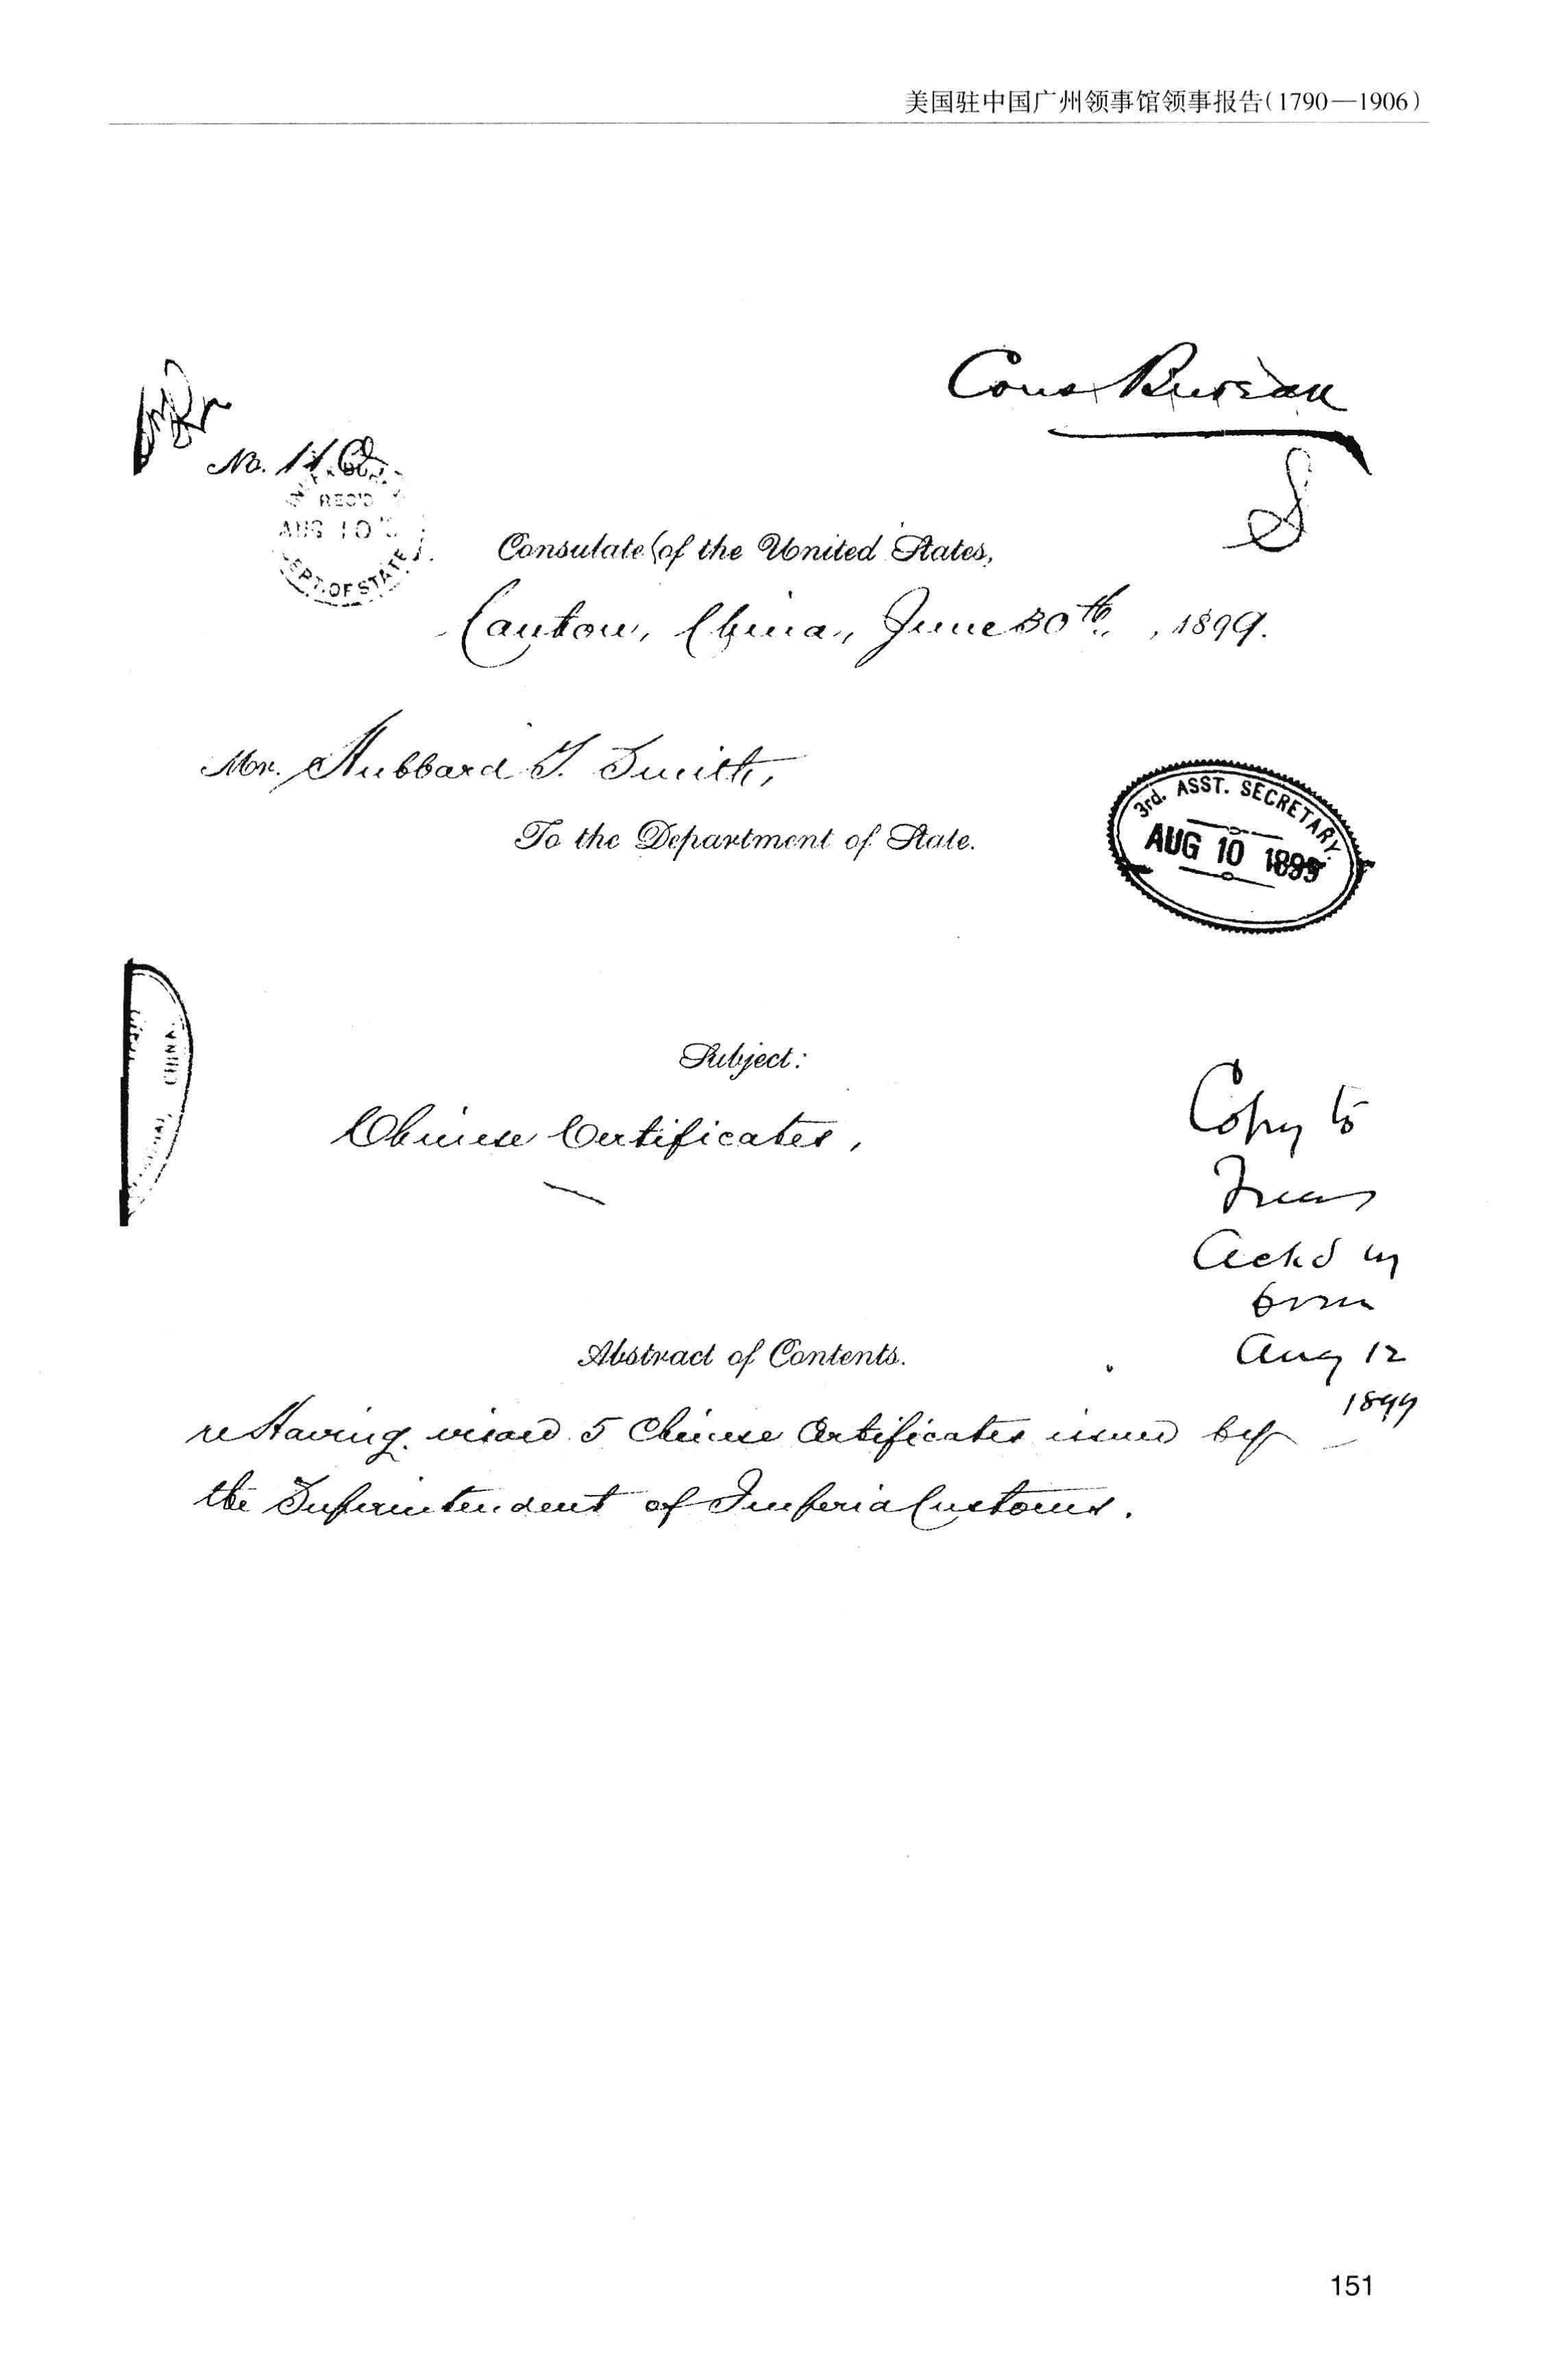 美国驻中国广州领事馆领事报告(1790—1906)
Cons Bureau
No. 110
REC'D
AUG 10
DEPT. OF STATE
S
Consulate of the United States,
Canton, China, June 30th, 1899.
Mr. Hubbard T. Smith,
To the Department of State.
3rd. ASST. SECRETARY.
AUG 10 1899
CHINA
Subject:
Chinese Certificates,
Copy to
Treas
Ackd in
form
Aug 12
1899
Abstract of Contents.
re Having visaed 5 Chinese Certificates issued by
the Superintendent of Imperial Customs.
151